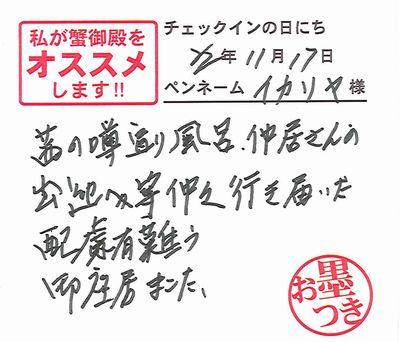 私が蟹御殿を
オススメ
します!!
チェックインの日にち
22年 11月 17日
ペンネーム イカリヤ 様
の噂通り風呂、仲居さんの
出迎へ等仲々行き届いた
配慮有難う
御座居ました、
お墨
つき